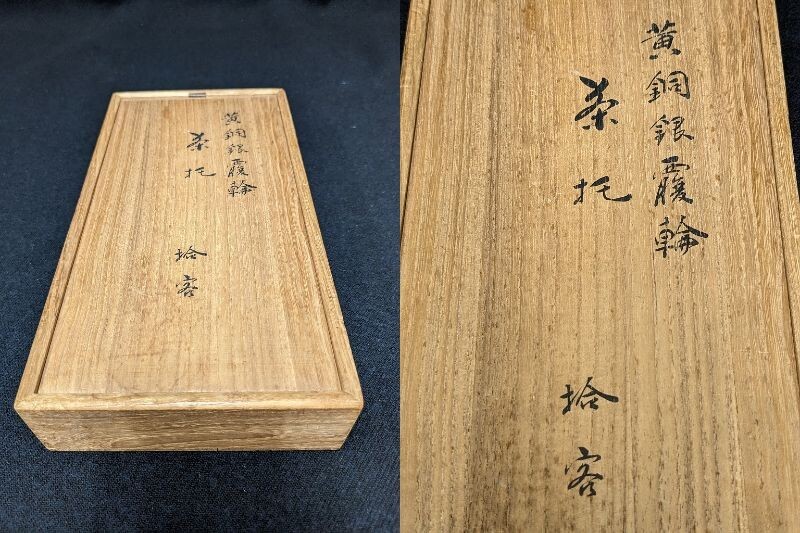 黄銅銀覆輪
茶托
拾客
黄銅銀覆輪
茶托
拾客